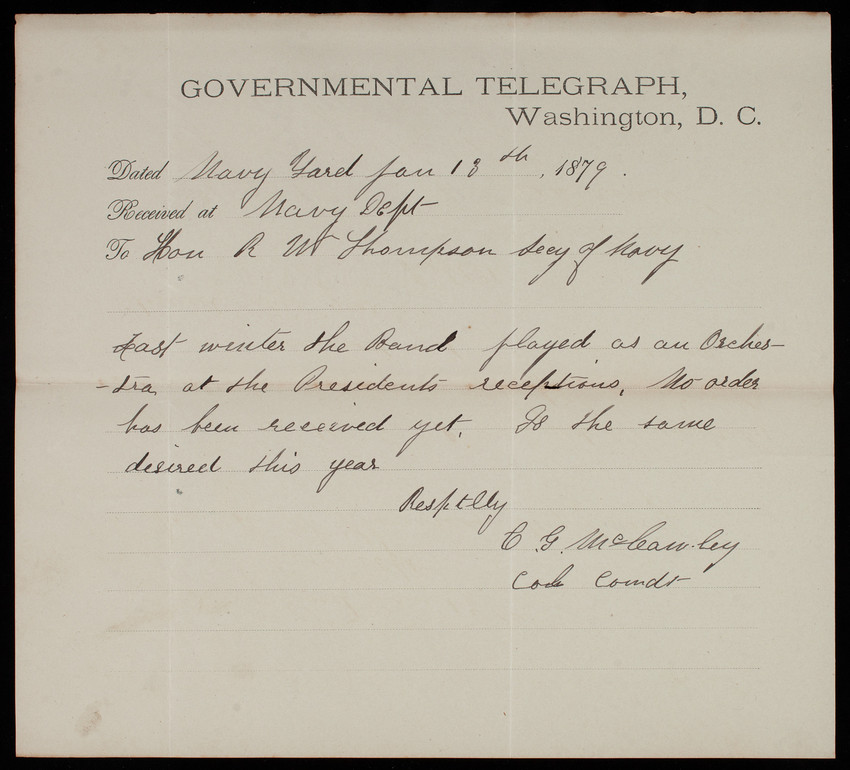 GOVERNMENTAL TELEGRAPH,
Washington, D. C.
Dated Navy Yard Jan 13th, 1879.
Received at Navy Dept
To Hon R W Thompson Secy of Navy
Last winter the Band played as an Orches-
-tra at the Presidents receptions, No order
has been received yet. Is the same
desired this year
Resptlly
C. G. McCawley
Col Comdt